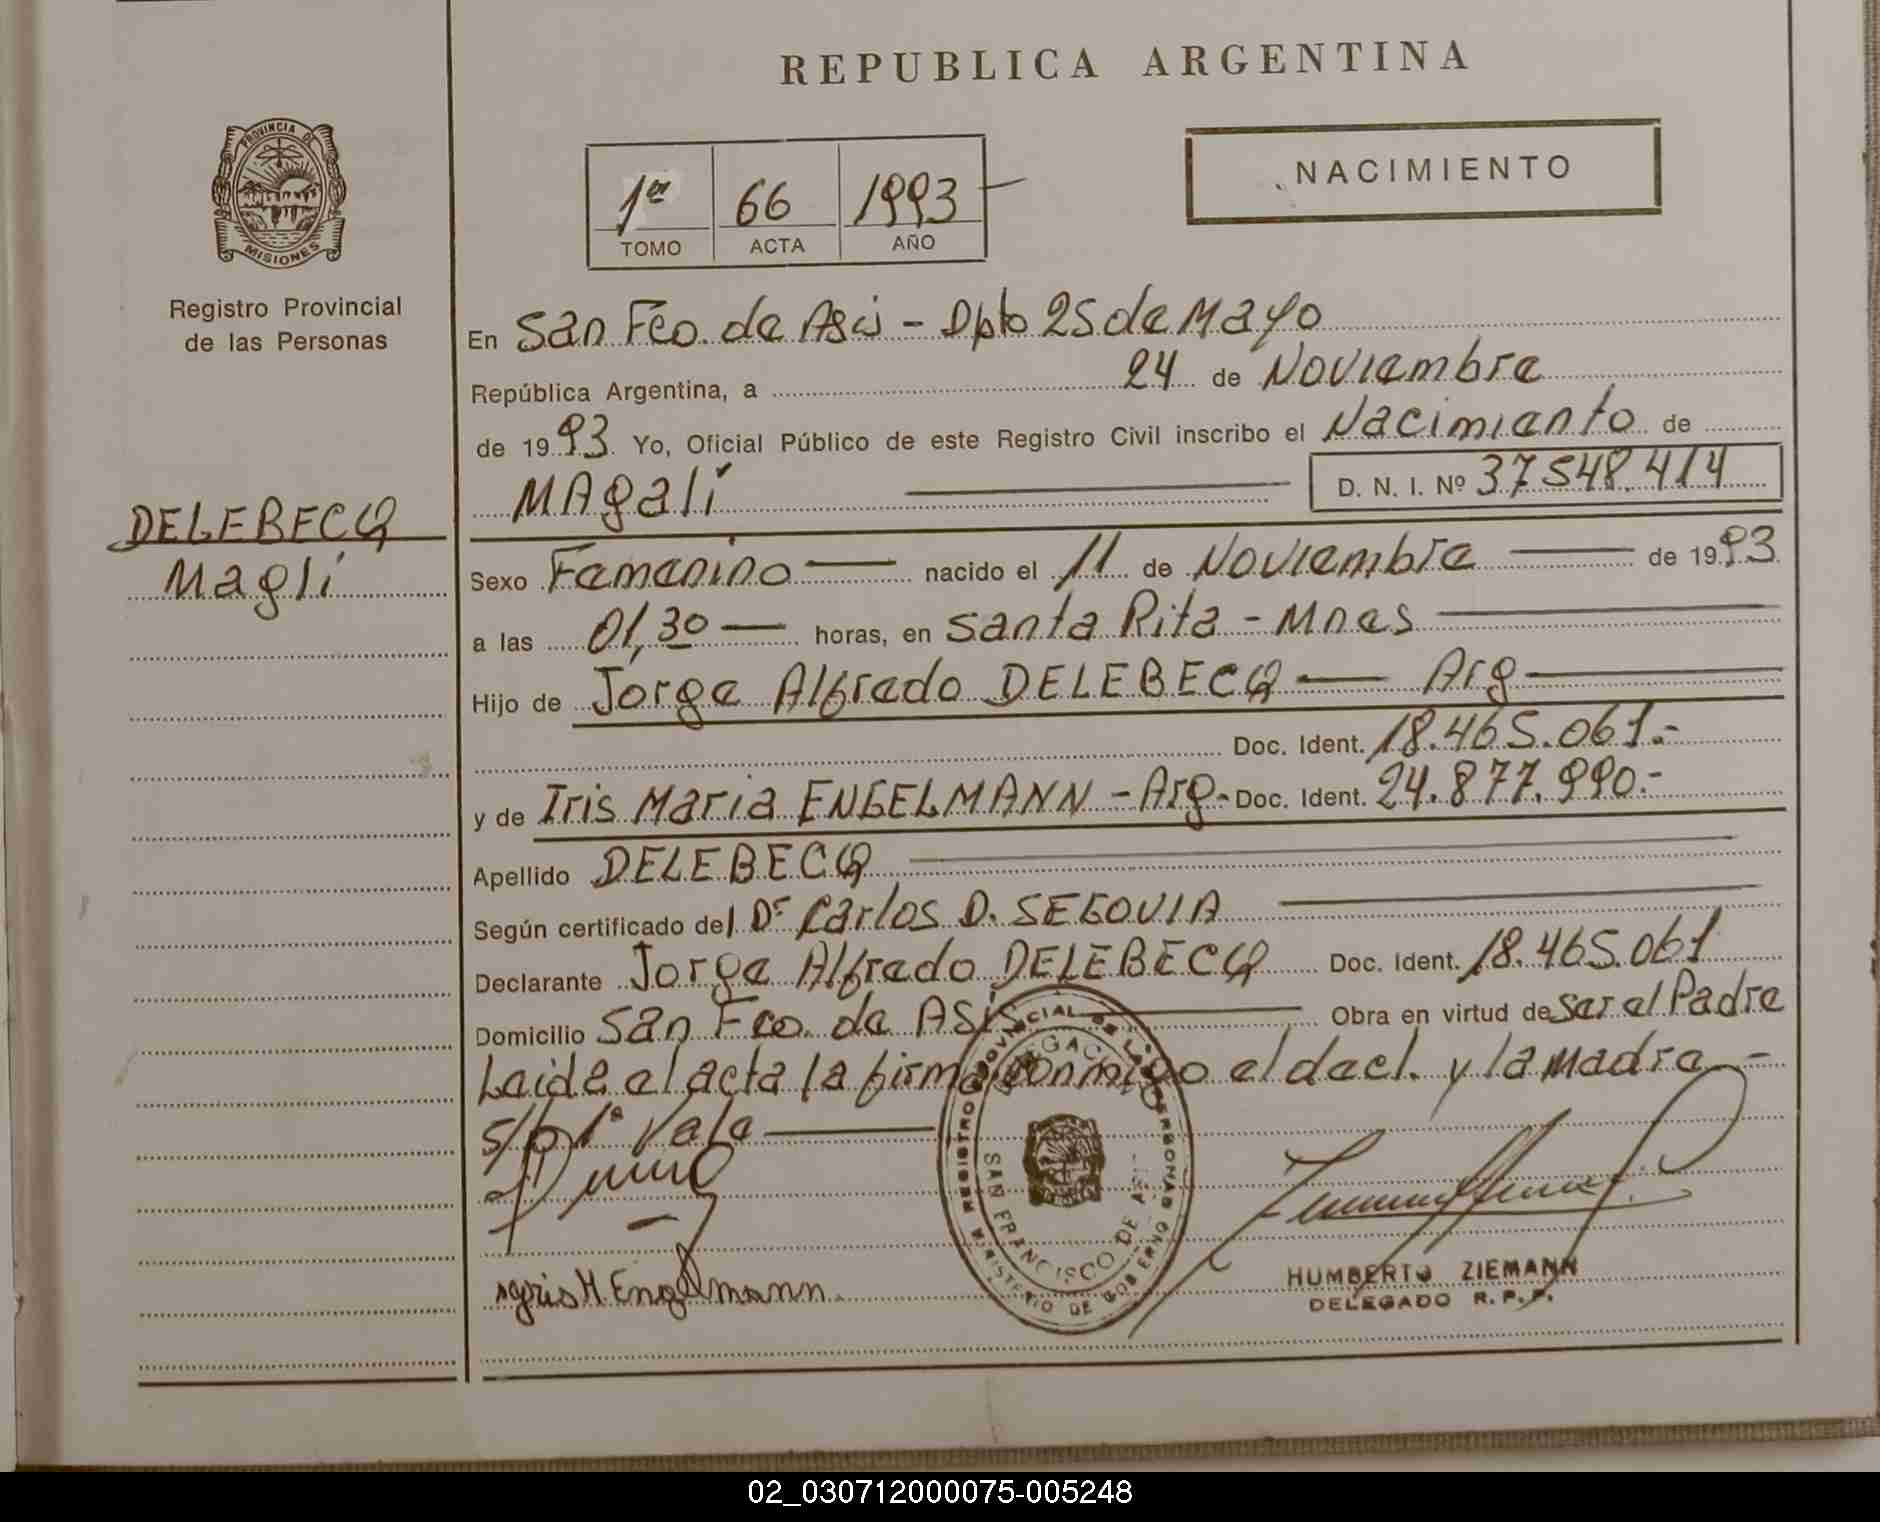 REPUBLICA ARGENTINA
PROVINCIA DE
MISIONES
Registro Provincial
de las Personas
1er 66 1993
TOMO ACTA AÑO
NACIMIENTO
En San Fco. de Asis - Dpto 25 de Mayo
República Argentina, a 24 de Noviembre
de 1993 Yo, Oficial Público de este Registro Civil inscribo el Nacimiento de
MAgalí D. N. I. Nº 37548.414
DELEBECQ
Maglí
Sexo Femenino nacido el 11 de Noviembre de 1993
a las 01,30 horas, en Santa Rita - Mnes
Hijo de Jorge Alfredo DELEBECQ Arg
Doc. Ident. 18.465.061.-
y de Iris Maria ENGELMANN - Arg. Doc. Ident. 24.877.990.-
Apellido DELEBECQ
Según certificado del Dr Carlos D. SEGOVIA
Declarante Jorge Alfredo DELEBECQ Doc. Ident. 18.465.061
Domicilio San Fco. de ASis Obra en virtud de Ser el Padre
Leida el acta la firma conmigo el decl. y la Madre -
S/p 1ª Vale
REGISTRO PROVINCIAL DE LAS PERSONAS
MINISTERIO DE GOBIERNO
DELEGACION
SAN FRANCISCO DE ASIS
Iris M Engelmann.
HUMBERTO ZIEMANN
DELEGADO R. P. P.
02_030712000075-005248